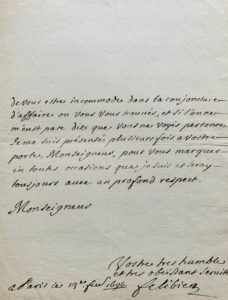 de vous estre incommode dans la conjoncture
d'affaire ou vous vous trouvés, et si l'on ne
m'eust pas dit que vous ne voyés personne
Je me suis presenté plusieurs fois a vostre
porte, Monseigneur, pour vous marquer
en toutes occasions que je suis et seray
tousjours avec un profond respect.
Monseigneur
Vostre tres humble
et tres obeissant servite
a Paris ce 13.e 1696 felibien